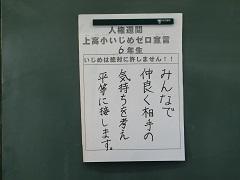 人権週間
上高小いじめゼロ宣言
6年生
いじめは絶対に許しません！！
みんなで
仲良く相手の
気持ちを考え
平等に接します。